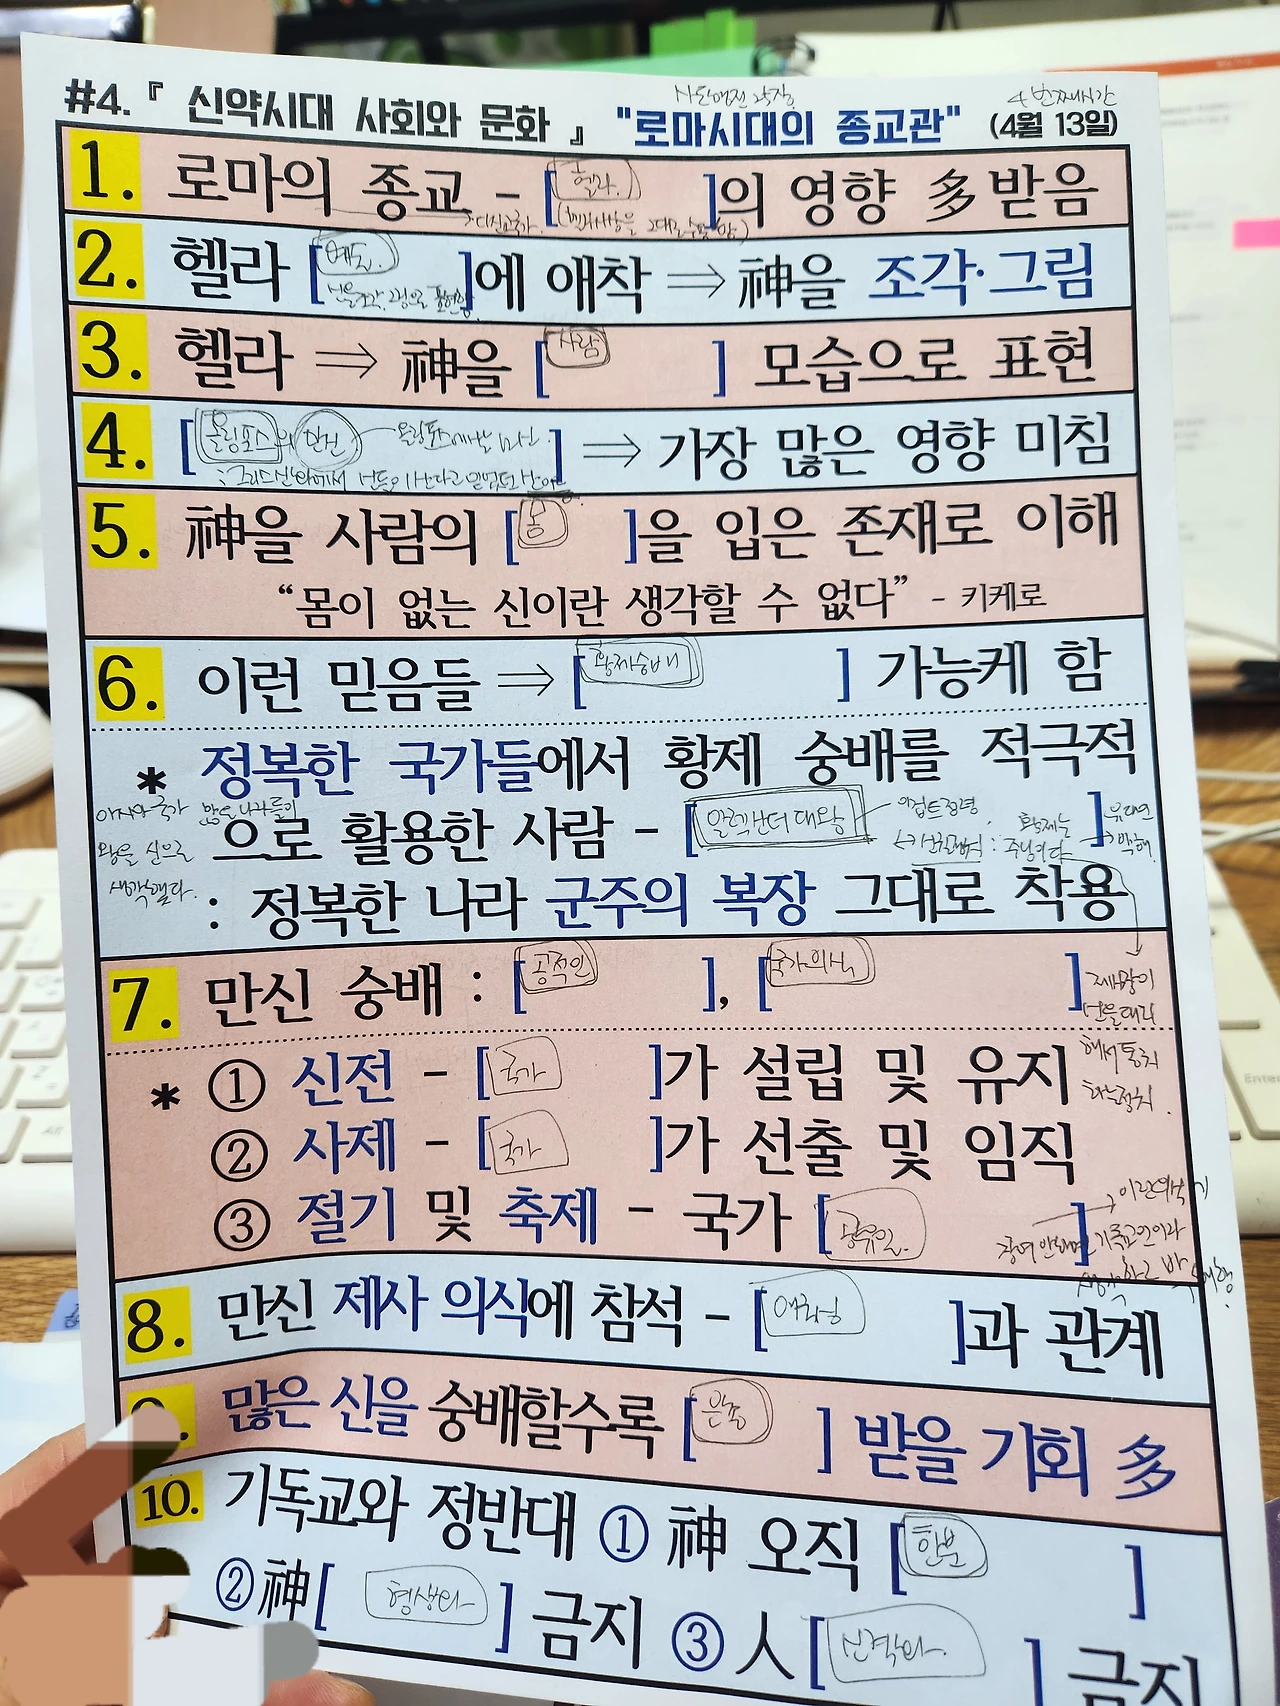 #4. 『 신약시대 사회와 문화 』 "로마시대의 종교관" (4월 13일)
4번째시간
1. 로마의 종교 - [헬라.]의 영향 多 받음
2. 헬라 [예술.]에 애착 ⇒ 神을 조각·그림
3. 헬라 ⇒ 神을 [사람] 모습으로 표현
4. [올림포스의 만신] ⇒ 가장 많은 영향 미침
5. 神을 사람의 [몸]을 입은 존재로 이해
“몸이 없는 신이란 생각할 수 없다” - 키케로
6. 이런 믿음들 ⇒ [황제숭배] 가능케 함
* 정복한 국가들에서 황제 숭배를 적극적
으로 활용한 사람 - [알렉산더 대왕]
왕을 신으로
생각했다.
: 정복한 나라 군주의 복장 그대로 착용
7. 만신 숭배 : [공적인], [국가의식]
* ① 신전 - [국가]가 설립 및 유지
② 사제 - [국가]가 선출 및 임직
③ 절기 및 축제 - 국가 [공휴일.]
8. 만신 제사 의식에 참석 - [애국심]과 관계
9. 많은 신을 숭배할수록 [은총] 받을 기회 多
10. 기독교와 정반대 ① 神 오직 [한분]
② 神[형상화] 금지 ③ 人[신격화.] 금지